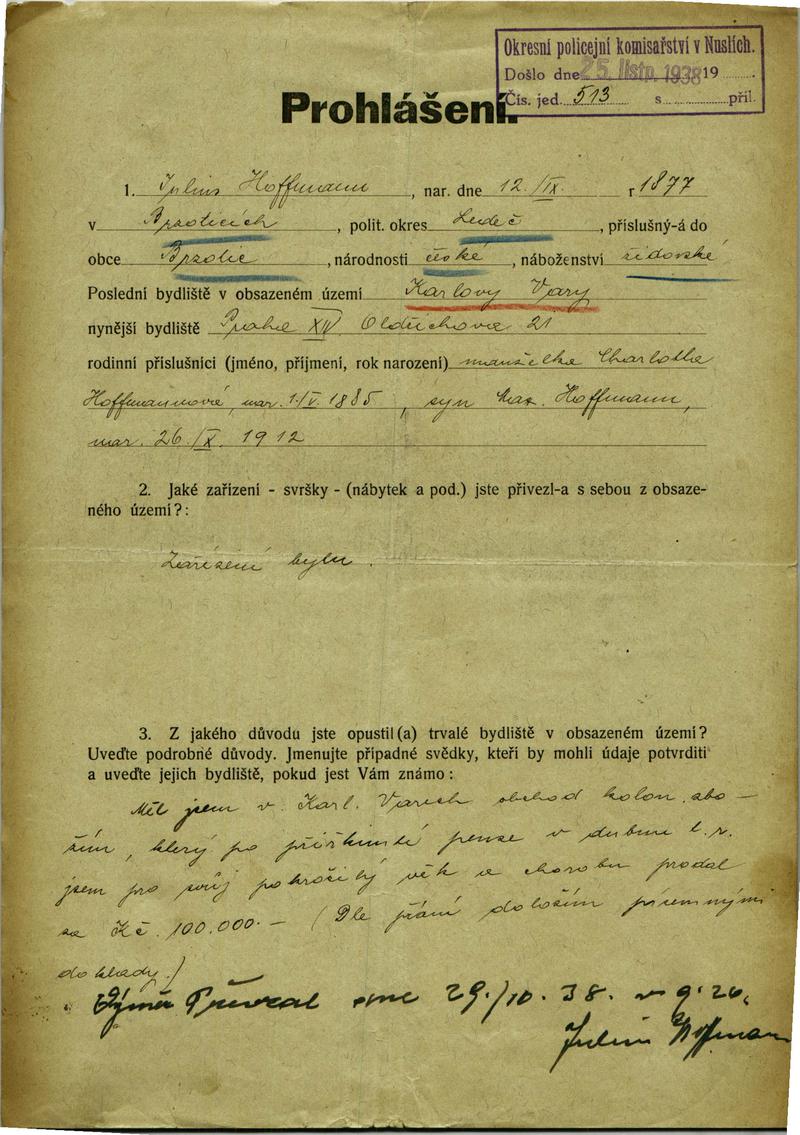 Okresní policejní komisařství v Nuslích.
Došlo dne 25. listp. 1938 19
Čís. jed. 513 s příl.
Prohlášení.
1. Julius Hoffmann, nar. dne 12./IX. r 1877
v Brzoticích, polit. okres Ledeč, příslušný-á do
obce Brzotic, národnosti české, náboženství židovské
Poslední bydliště v obsazeném území Karlovy Vary
nynější bydliště Praha XIV Oldřichova 21
rodinní příslušníci (jméno, příjmení, rok narození) manželka Charlotta
Hoffmannová, nar. 1./V. 1885, syn Max. Hoffmann,
nar. 26./X. 1912
2. Jaké zařízení - svršky - (nábytek a pod.) jste přivezl-a s sebou z obsaze-
ného území?:
Zařízení bytu.
3. Z jakého důvodu jste opustil(a) trvalé bydliště v obsazeném území?
Uveďte podrobné důvody. Jmenujte případné svědky, kteří by mohli údaje potvrditi
a uveďte jejich bydliště, pokud jest Vám známo:
Měl jsem v Karl. Varech obchod kolon. zbo-
žím, který po pense v dubnu t. r.
jsem pro svůj pokročilý věk a chorobu prodal
za Kč. 100.000.- (Dle přání doložím písemnými
doklady.)
Výměr Převzal dne 29./10. 38. v 9.20,
Julius Hoffmann